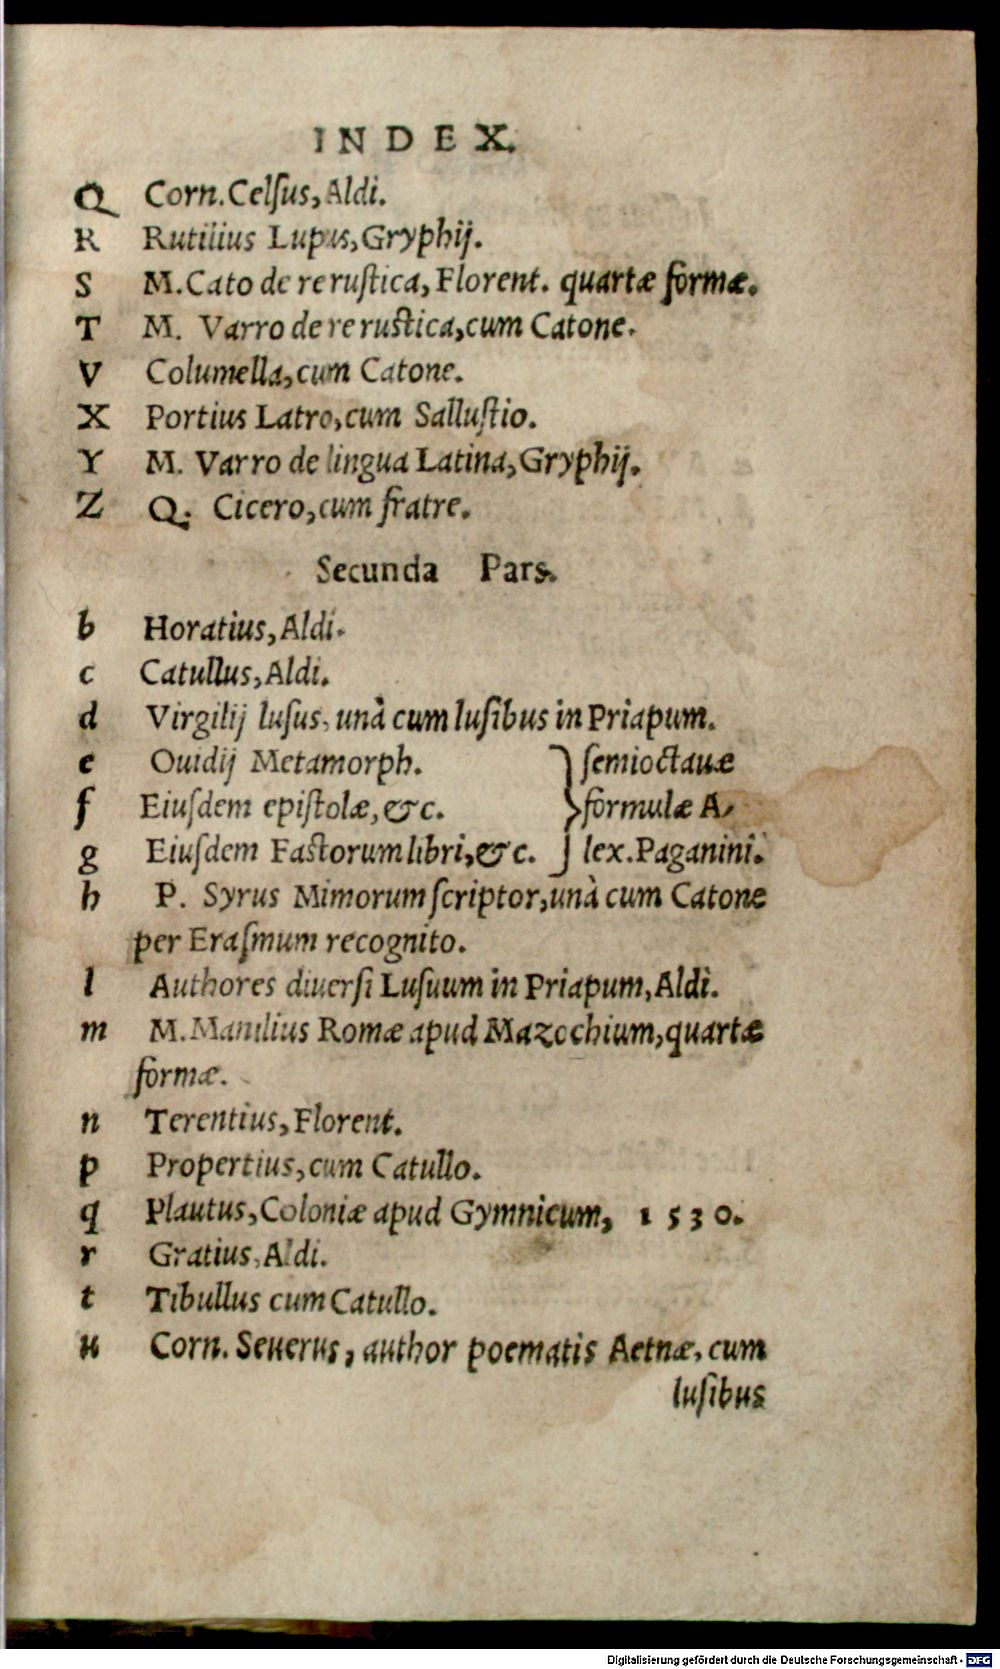 INDEX.
Q Corn. Celſus, Aldi.
R Rutilius Lupus, Gryphij.
S M. Cato de re ruſtica, Florent. quartæ formæ.
T M. Varro de re ruſtica, cum Catone.
V Columella, cum Catone.
X Portius Latro, cum Salluſtio.
Y M. Varro de lingua Latina, Gryphij.
Z Q. Cicero, cum fratre.
Secunda Pars.
b Horatius, Aldi.
c Catullus, Aldi.
d Virgilij luſus, unà cum luſibus in Priapum.
e Ouidij Metamorph. ſemioctauæ
f Eiuſdem epiſtolæ, &c. formulæ A-
g Eiuſdem Faſtorum libri, &c. lex. Paganini.
h P. Syrus Mimorum ſcriptor, unà cum Catone
per Eraſmum recognito.
l Authores diuerſi Luſuum in Priapum, Aldi.
m M. Manilius Romæ apud Mazochium, quartæ
formæ.
n Terentius, Florent.
p Propertius, cum Catullo.
q Plautus, Coloniæ apud Gymnicum, 1530.
r Gratius, Aldi.
t Tibullus cum Catullo.
u Corn. Seuerus, author poematis Aetnæ, cum
luſibus
Digitalisierung gefördert durch die Deutsche Forschungsgemeinschaft - DFG